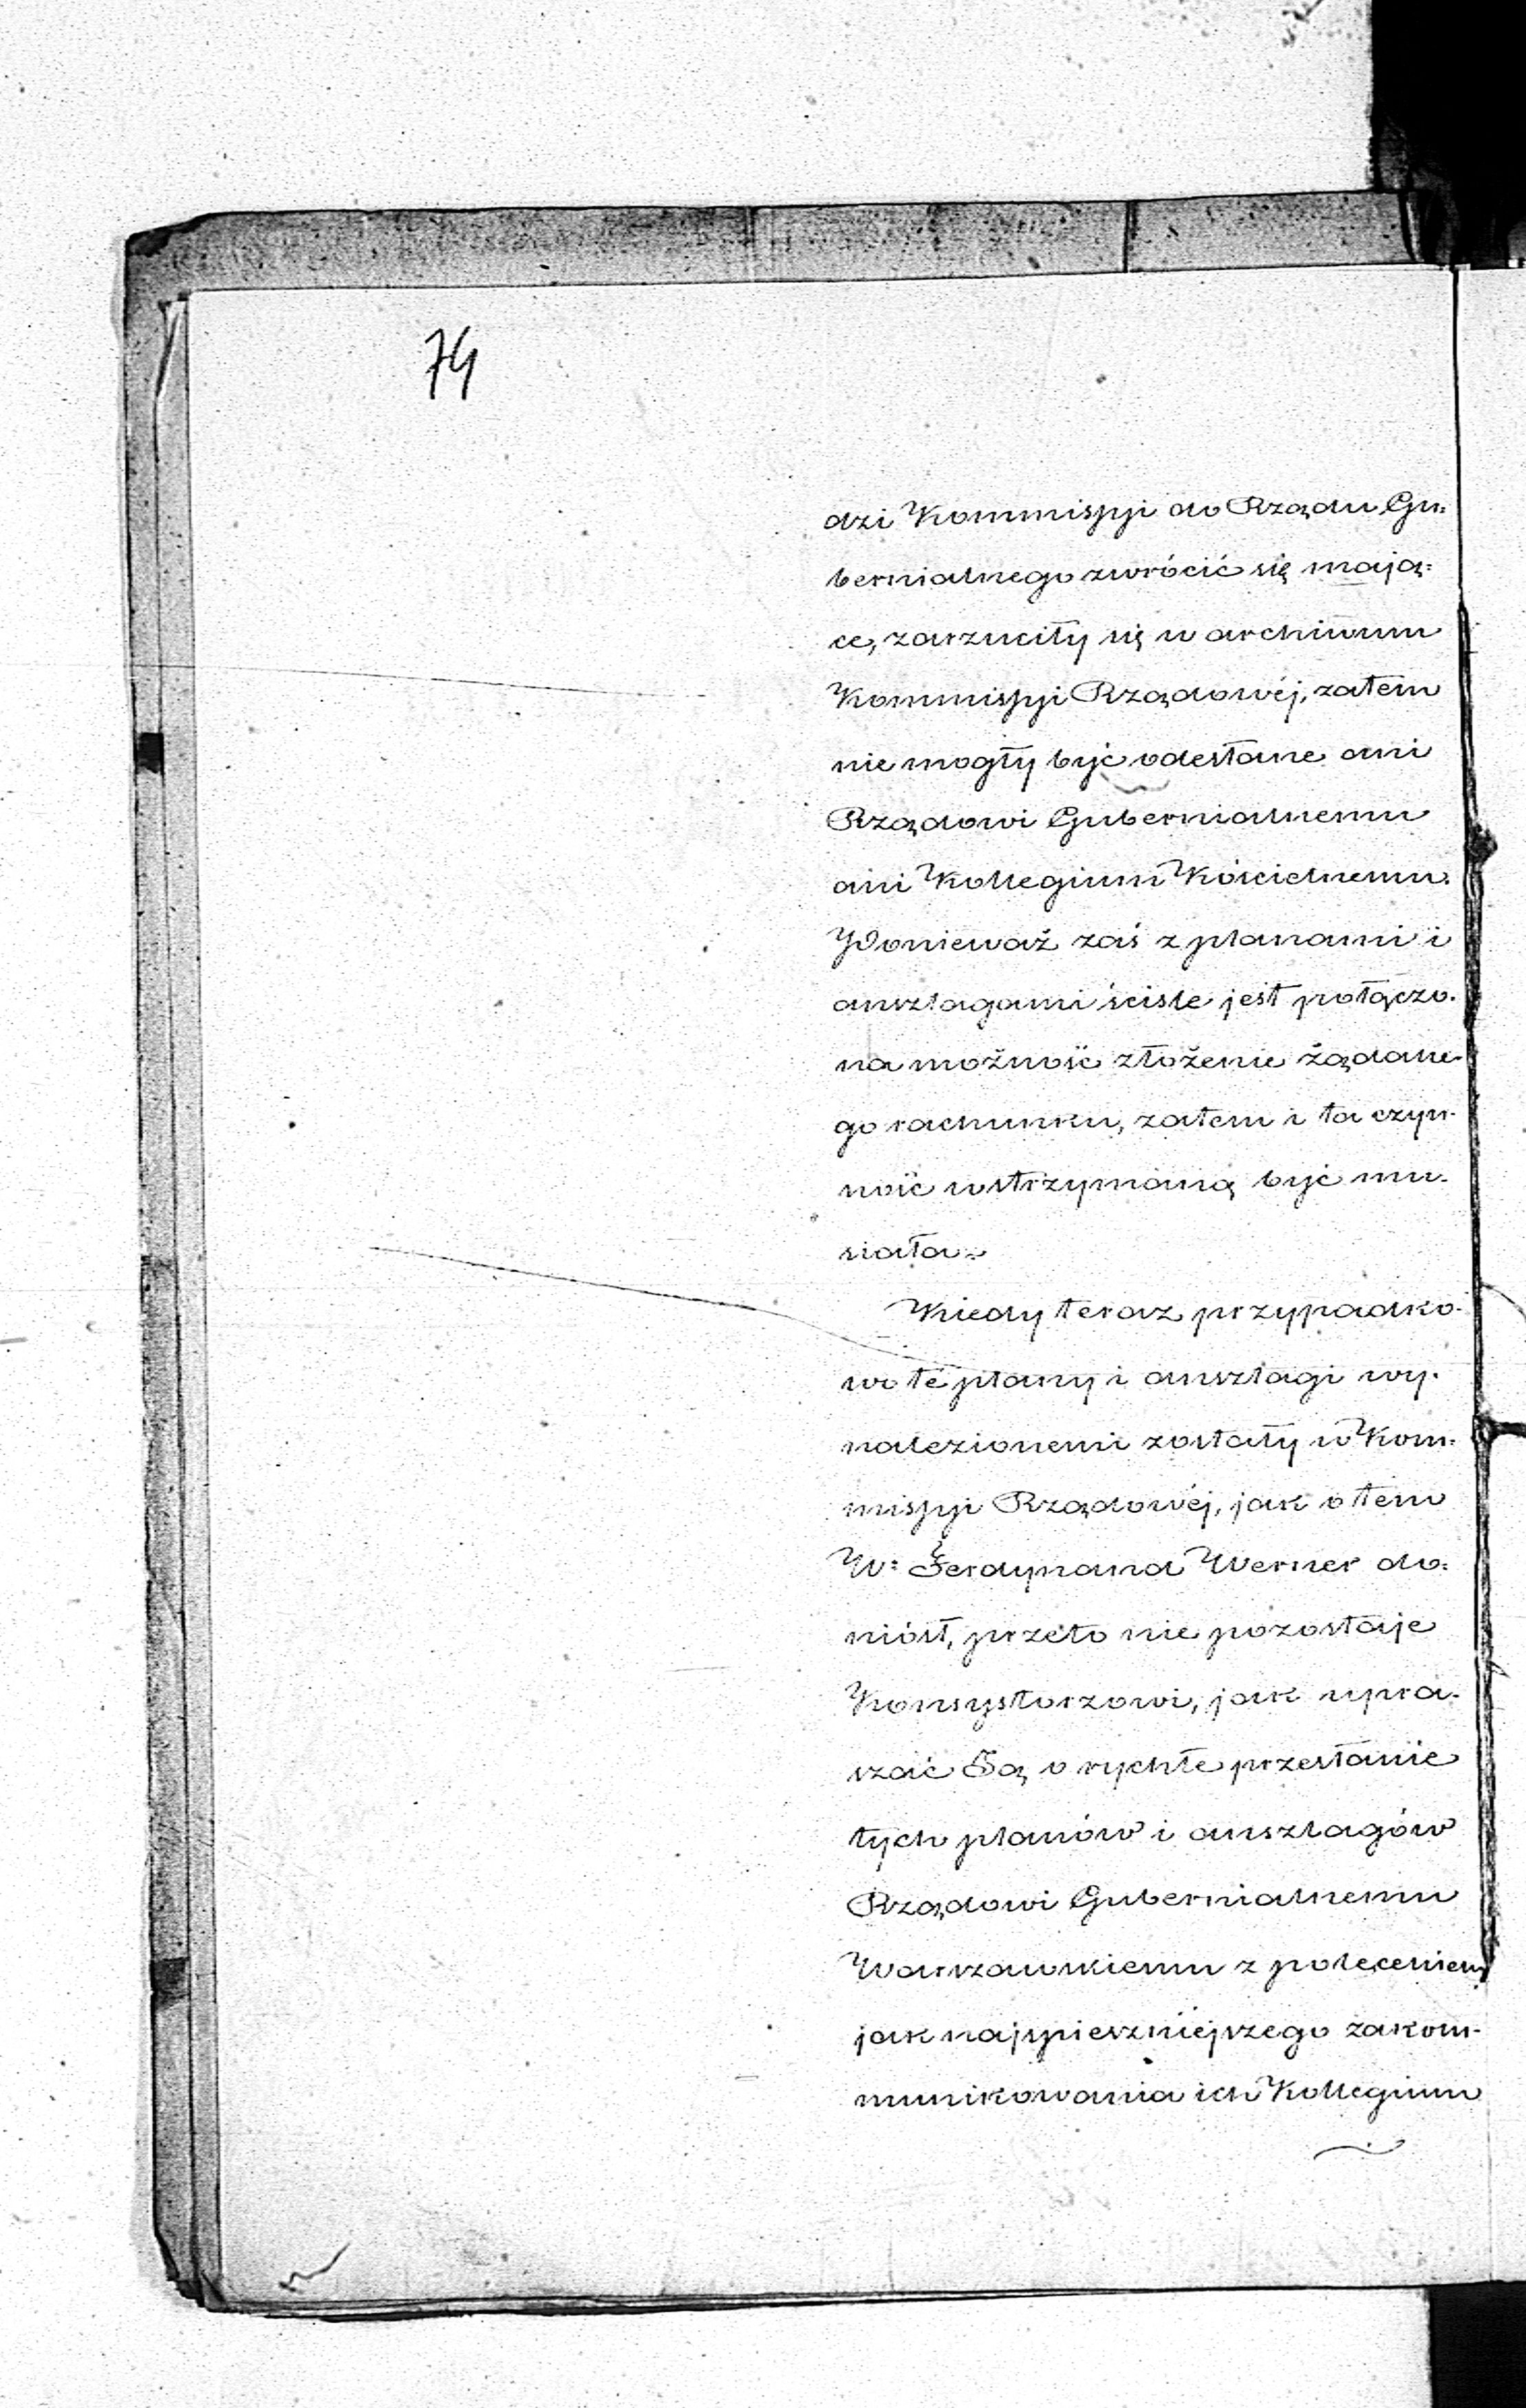 74
dzi Kommissyi do Rządu Gu-
bernialnego zwrócić się mają-
ce, zarzuciły się w archiwum
Kommissyi Rządowéj, zatem
nie mogły być odesłane ani
Rządowi Gubernialnemu
ani Kollegium Kościelnemu.
Ponieważ zaś z planami i
anszlagami ściśle jest połączo-
na możność złożenie żądane-
go rachunku, zatem i ta czyn-
ność wstrzymaną być mu-
siała.
Kiedy teraz przypadko-
wo te plany i anszlagi wy-
nalezionemi zostały w Kom-
missyi Rządowéj, jak o tem
W: Ferdynand Werner do-
niósł, przeto nie pozostaje
Konsystorzowi, jak upra-
szać Ją o rychłe przesłanie
tych planów i anszlagów
Rządowi Gubernialnemu
Warszawskiemu z poleceniem
jak najspieszniejszego zakom-
munikowania ich Kollegium